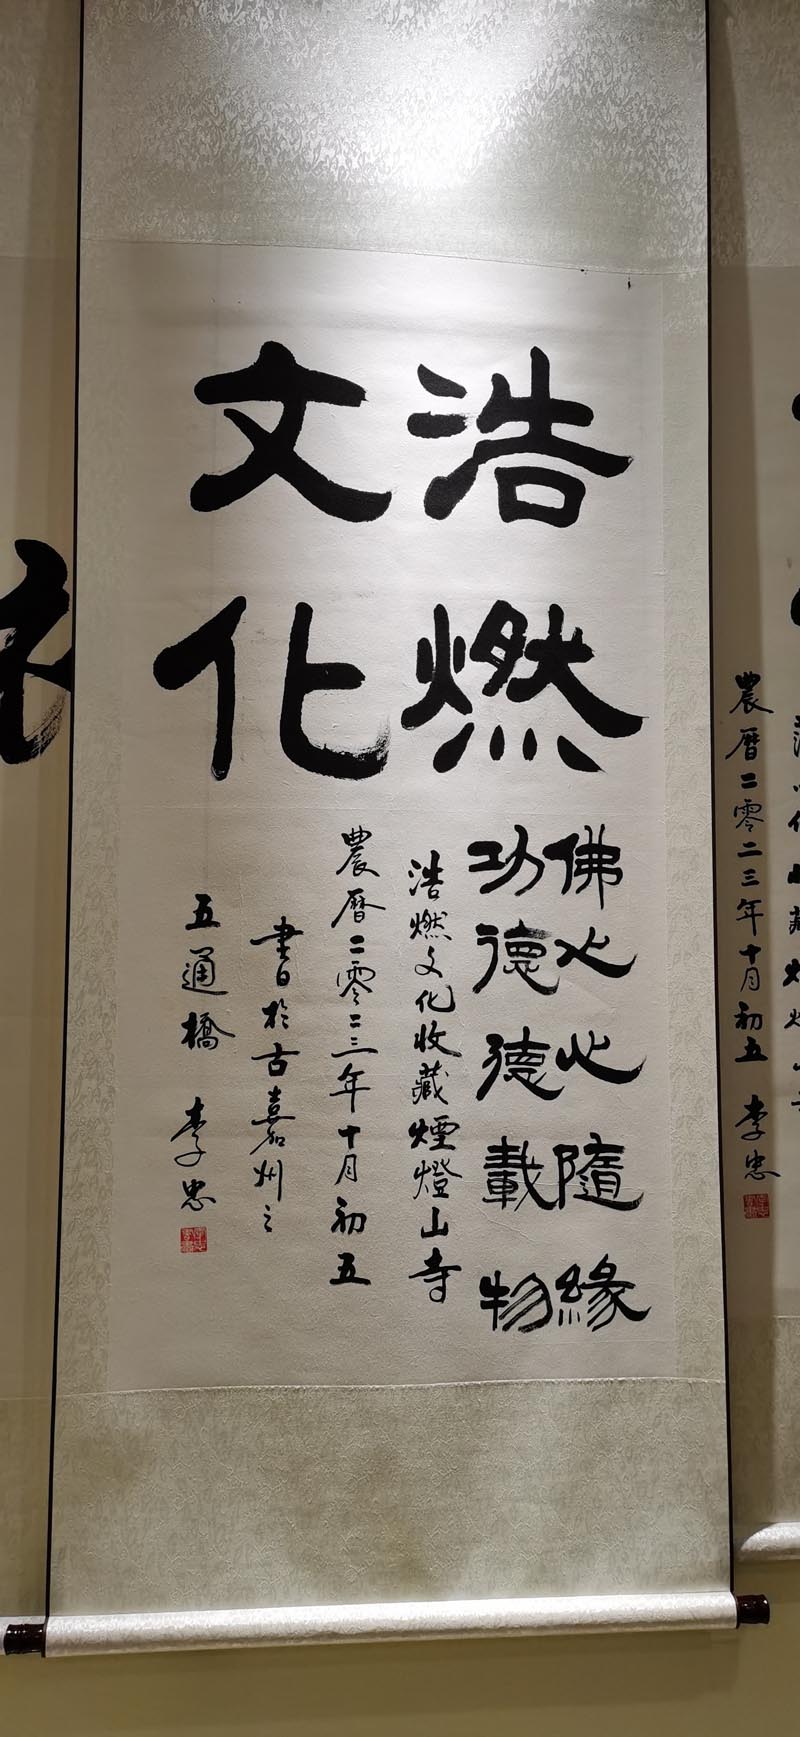 浩燃
文化
佛心心隨緣
功德德載物
浩燃文化收藏煙燈山寺
農曆二零二三年十月初五
書於古嘉州之
五通橋 李忠
農曆二零二三年十月初五 李忠